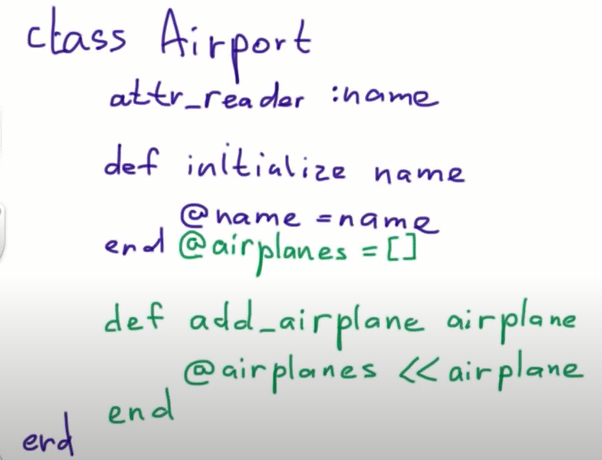 class Airport
attr_reader :name
def initialize name
@name = name
end @airplanes = []
def add_airplane airplane
@airplanes << airplane
end
end